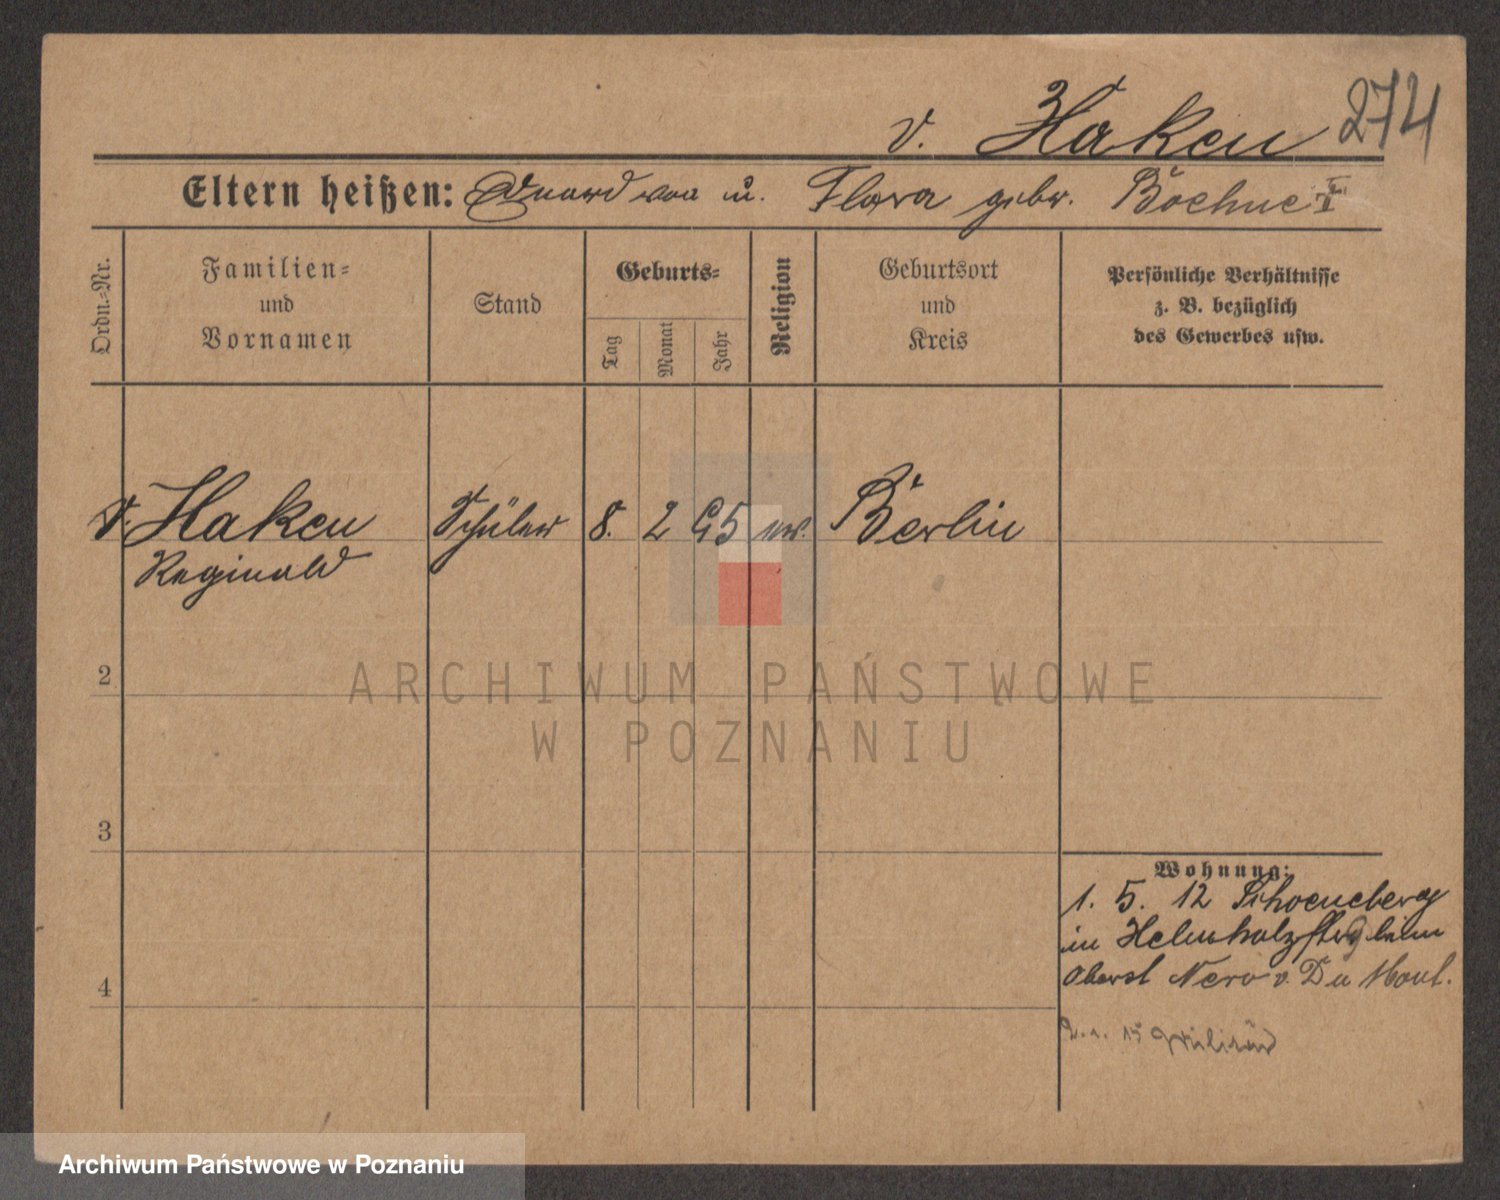 v. Haken 274
Eltern heißen: Eduard von u. Flora geb. Boehne II
Ordn.=Nr.
Familien=
und
Vornamen
Stand
Geburts=
Tag
Monat
Jahr
Religion
Geburtsort
und
Kreis
Persönliche Verhältnisse
z. B. bezüglich
des Gewerbes usw.
v. Haken Schüler 8. 2 95 ev. Berlin
Reginald
2
3
4
Wohnung:
1. 5. 12 Schoeneberg
in Helmholzstr. beim
Oberst Nero v. Du Mont.
15 Militär
ARCHIWUM PAŃSTWOWE
W POZNANIU
Archiwum Państwowe w Poznaniu